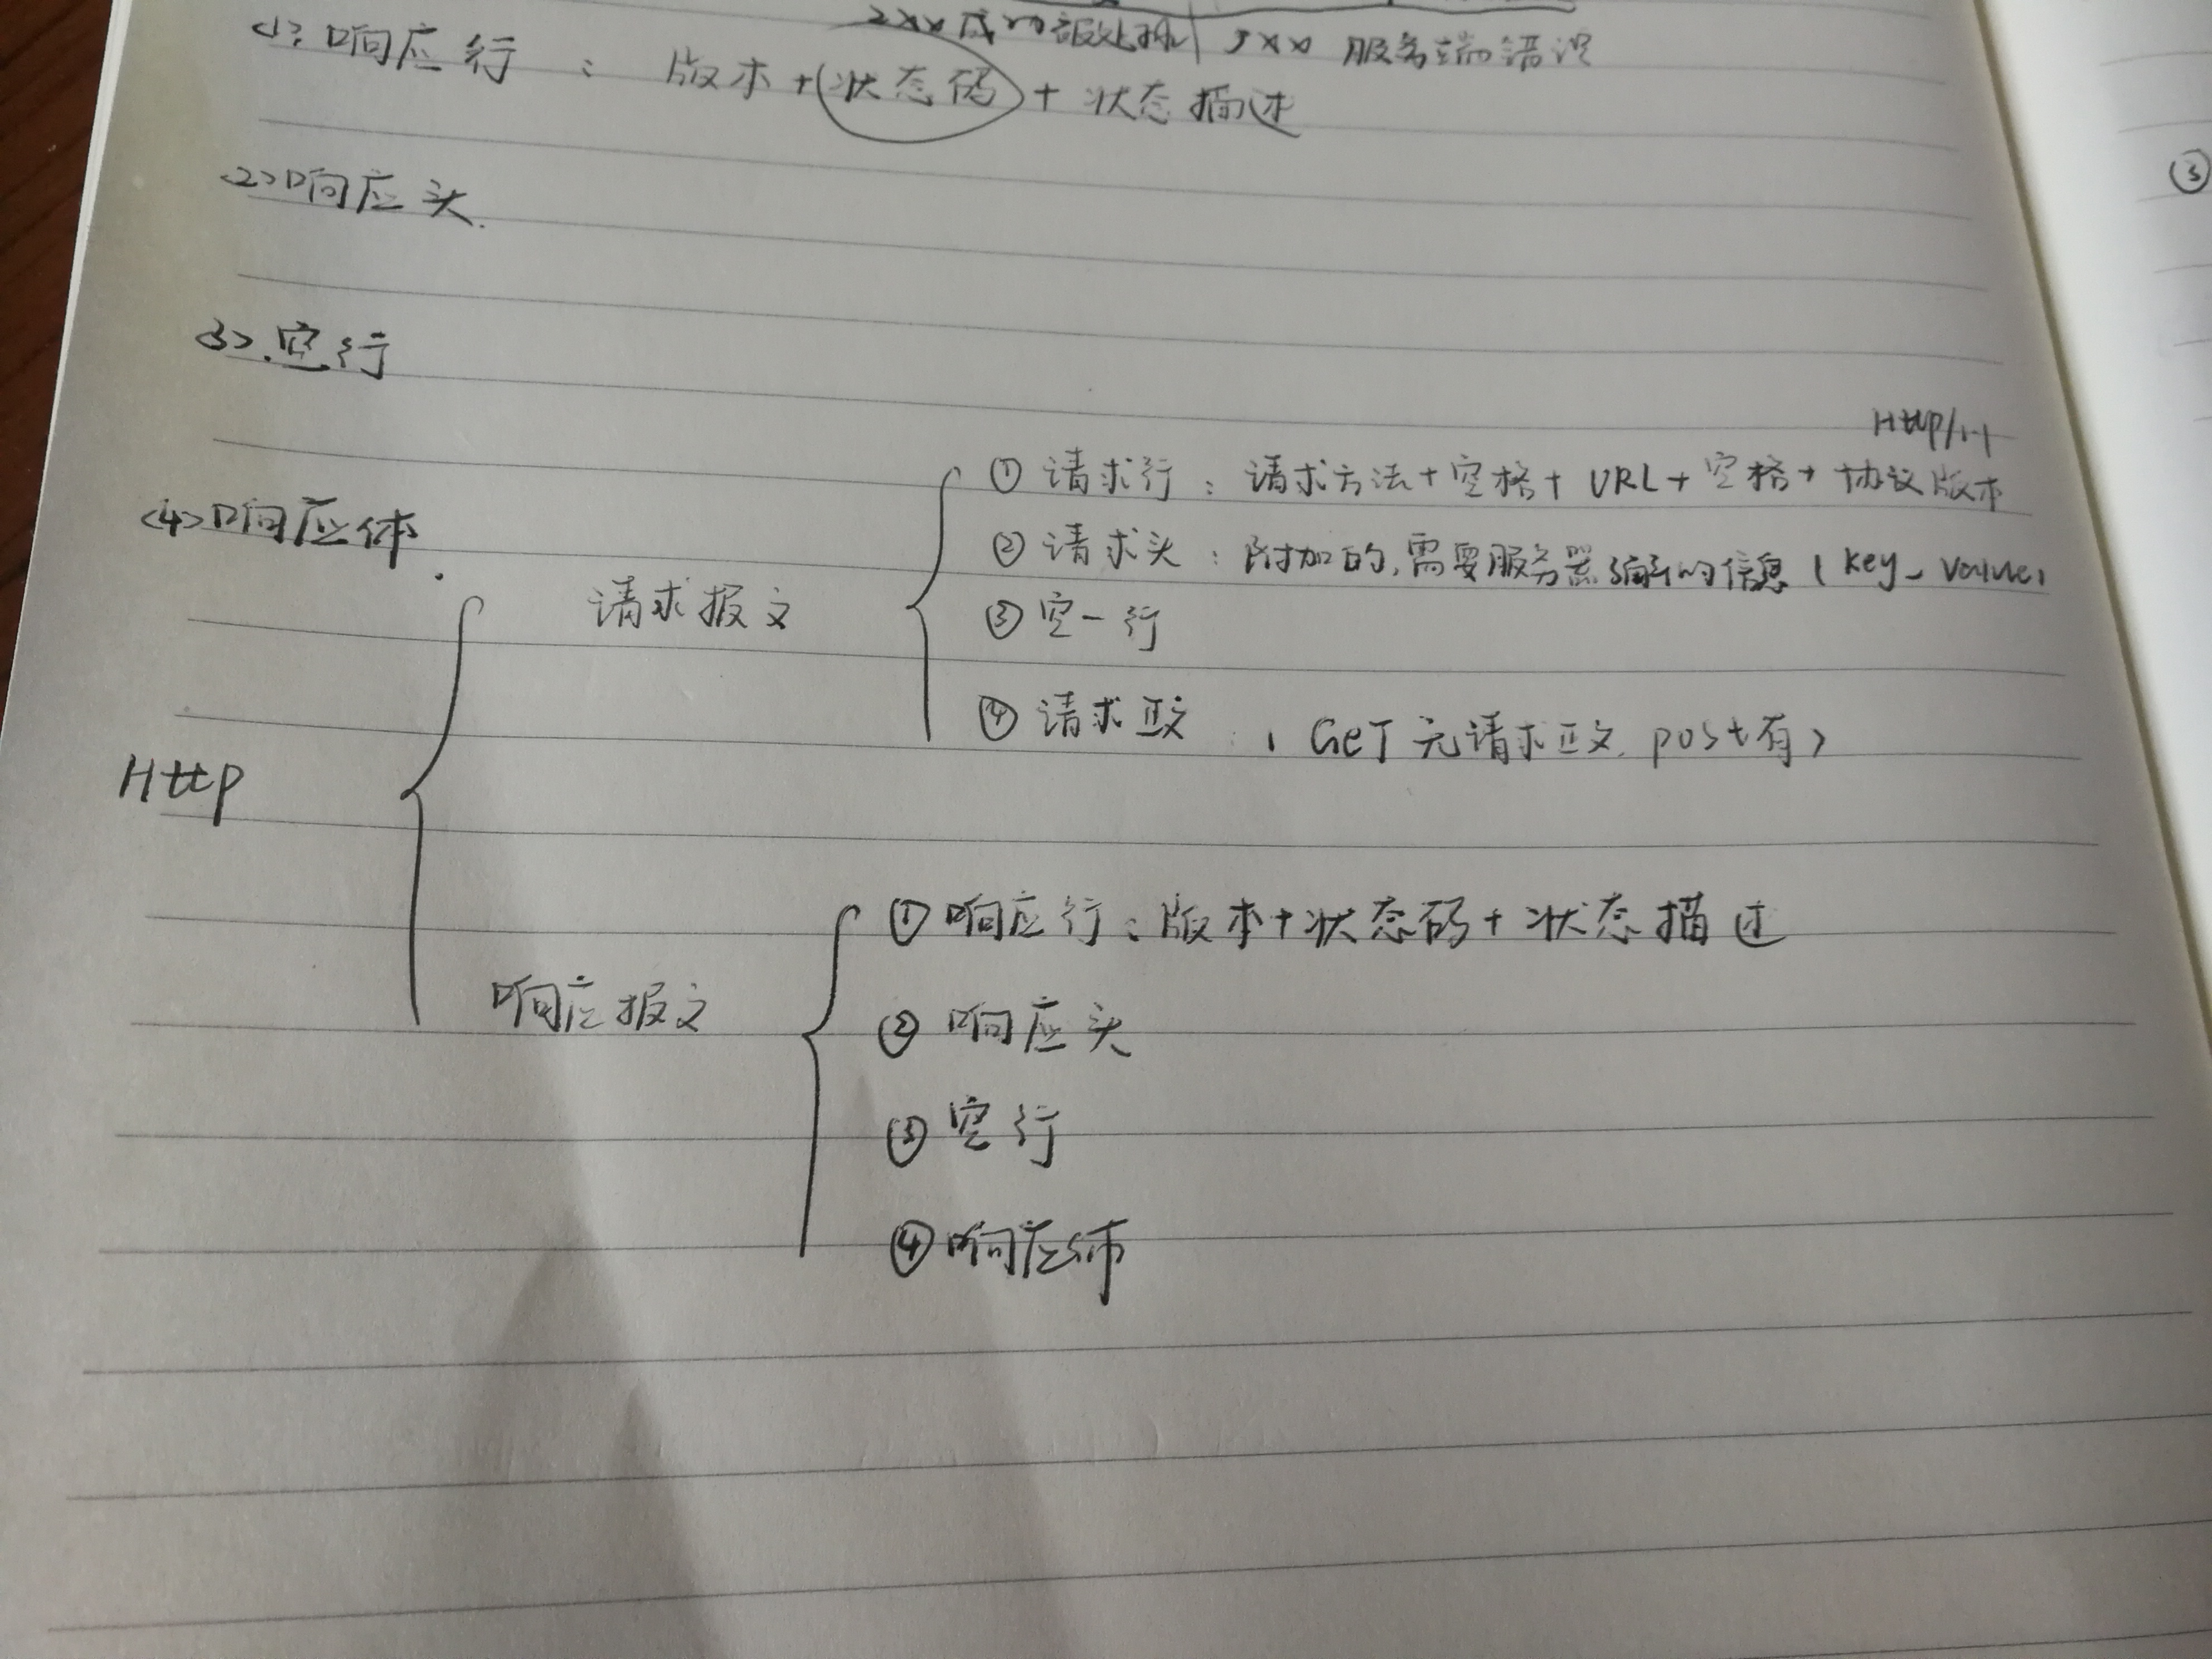 2xx 成功被处理 5xx 服务端错误
<1> 响应行 : 版本+(状态码)+状态描述
<2> 响应头.
<3>.空行
<4>响应体.
Http/1.1
① 请求行 : 请求方法+空格+URL+空格+协议版本
② 请求头 : 附加的,需要服务器 的信息 ( key_ value)
请求报文
③ 空一行
④ 请求正文 ( GeT 无请求正文. post有)
Http
① 响应行 : 版本+状态码+状态描述
响应报文
② 响应头
③ 空行
④ 响应体
③